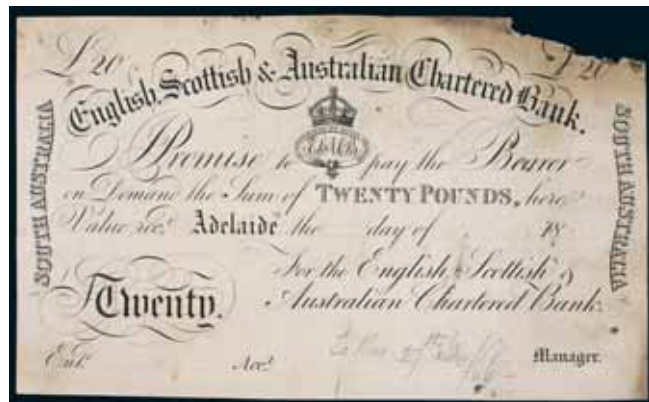 £ 20 £ 20
English, Scottish & Australian Chartered Bank.
SOUTH AUSTRALIA
SOUTH AUSTRALIA
E.S.&A.C.B.
I Promise to pay the Bearer
on Demand the Sum of TWENTY POUNDS, here
Value recd. Adelaide the day of 18
For the English Scottish &
Twenty. Australian Chartered Bank.
Entd. Acct. Manager.